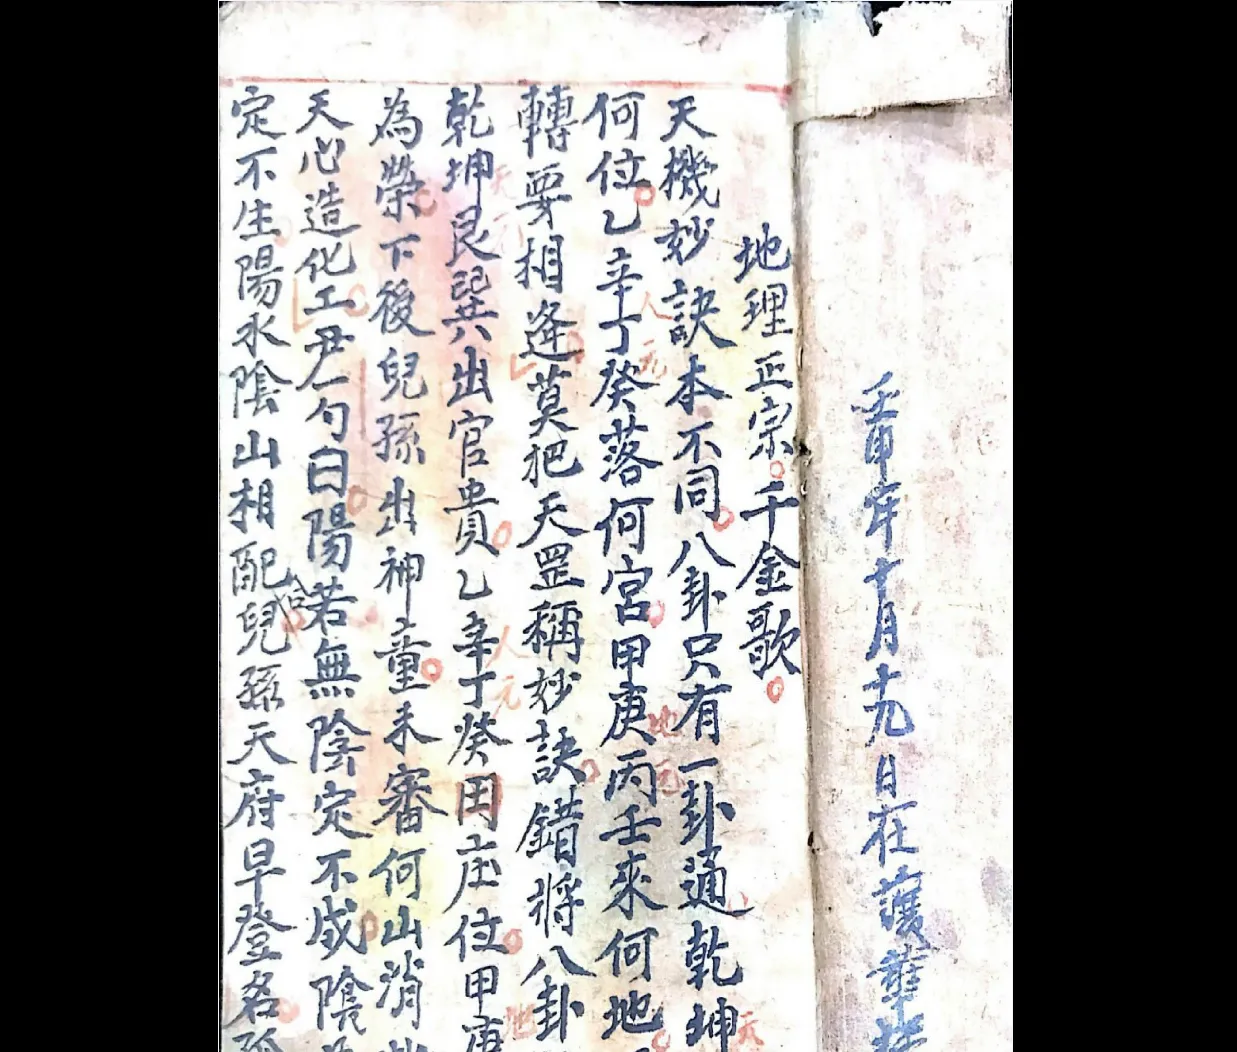 壬申年十月十九日在護華
地理正宗 千金歌
天機妙訣本不同八卦只有一卦通乾坤
何位乙辛丁癸落何宮甲庚丙壬來何地
轉要相逢莫把天罡稱妙訣錯將八卦
乾坤艮巽出官貴乙辛丁癸田庄位甲庚
為榮下後兒孫出神童未審何山消
天心造化工尹一勺曰陽若無陰定不成陰
定不生陽水陰山相配兒孫天府早登名
天元
人元
地元
天
人元
地
合